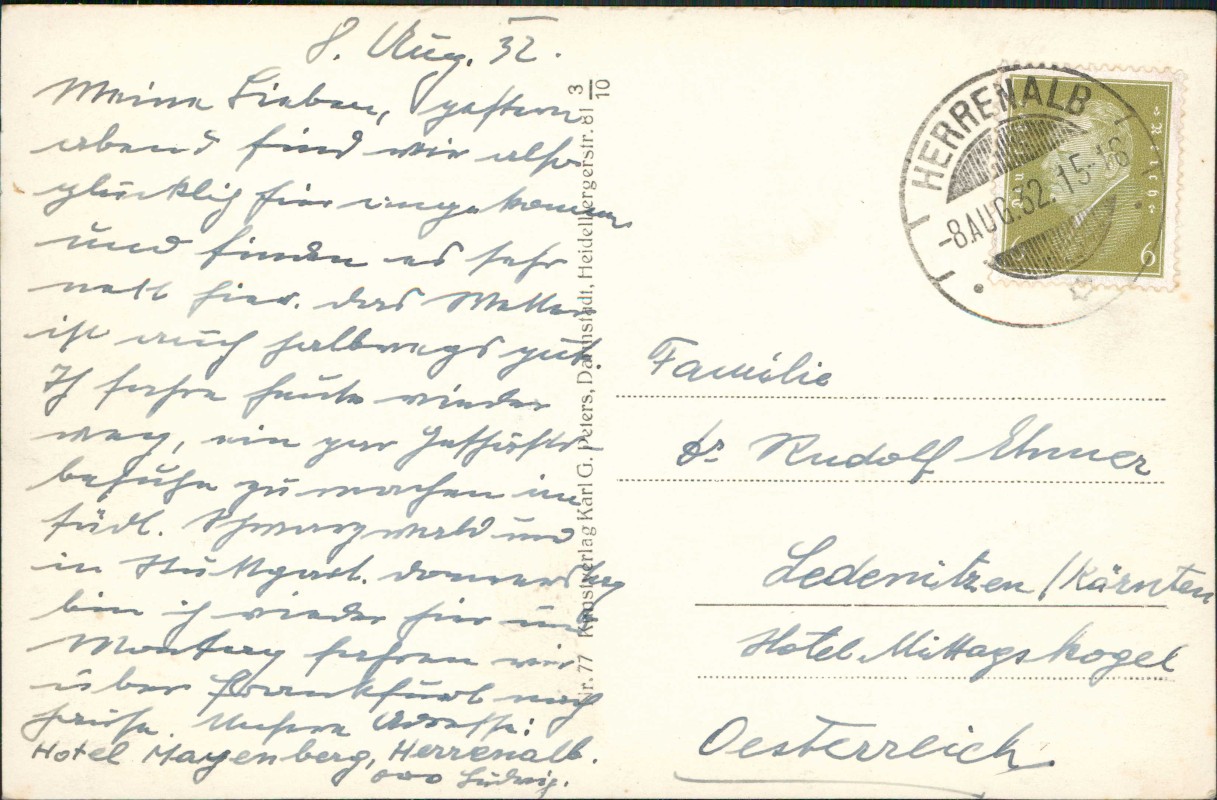 8. Aug. 32.
Meine Lieben, gestern
abend sind wir also
glücklich hier angekommen
und finden es sehr
nett hier. das Wetter
ist auch halbwegs gut.
Ich fahre heute wieder
weg, ein par Geschäfts
besuche zu machen im
südl. Schwarzwald und
in Stuttgart. donnerstag
bin ich wieder hier und
Montag fahren wir
über Frankfurt nach
hause. Unsere Adresse:
Hotel Mayenberg, Herrenalb.
Ludwig.
Nr. 77 Kunstverlag Karl G. Peters, Darmstadt, Heidelbergerstr. 81 3/10
HERRENALB
-8.AUG.32.15-16
6
Familie
dr Rudolf Ehmer
Ledenitzen / Kärnten
Hotel Mittagskogel
Oesterreich.